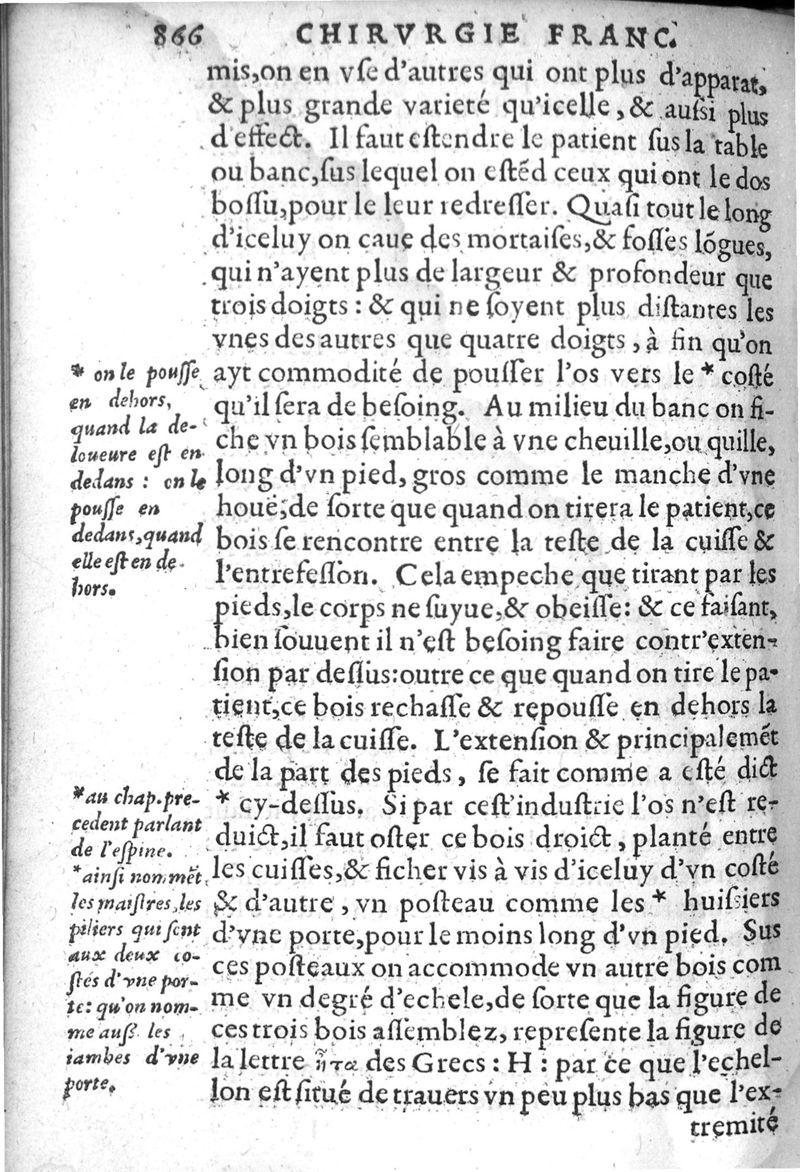 866 CHIRVRGIE FRANC.
mis,on en vſe d'autres qui ont plus d'apparat,
& plus grande varieté qu'icelle, & auſsi plus
d'effect. Il faut eſtendre le patient ſus la table
ou banc, ſus lequel on eſtẽd ceux qui ont le dos
boſſu,pour le leur redreſſer. Quaſi tout le long
d'iceluy on caue des mortaiſes,& foſſes lõgues,
qui n'ayent plus de largeur & profondeur que
trois doigts : & qui ne ſoyent plus diſtantes les
vnes des autres que quatre doigts, à fin qu'on
ayt commodité de pouſſer l'os vers le * coſté
qu'il ſera de beſoing. Au milieu du banc on fi-
che vn bois ſemblable à vne cheuille,ou quille,
long d'vn pied, gros comme le manche d'vne
houë;de ſorte que quand on tirera le patient,ce
bois ſe rencontre entre la teſte de la cuiſſe &
l'entrefeſſon. Cela empeche que tirant par les
pieds,le corps ne ſuyue,& obeiſſe: & ce faiſant,
bien ſouuent il n'eſt beſoing faire contr'exten-
ſion par deſſus:outre ce que quand on tire le pa-
tient,ce bois rechaſſe & repouſſe en dehors la
teſte de la cuiſſe. L'extenſion & principalemẽt
de la part des pieds, ſe fait comme a eſté dict
* cy-deſſus. Si par ceſt'induſtrie l'os n'eſt re-
duict,il faut oſter ce bois droict, planté entre
les cuiſſes,& ficher vis à vis d'iceluy d'vn coſté
& d'autre, vn poſteau comme les * huiſsiers
d'vne porte,pour le moins long d'vn pied. Sus
ces poſteaux on accommode vn autre bois com
me vn degré d'echele,de ſorte que la figure de
ces trois bois aſſemblez, repreſente la figure de
la lettre ἦτα des Grecs : H : par ce que l'echel-
lon eſt ſitué de trauers vn peu plus bas que l'ex-
tremité
* on le pouſſe
en dehors,
quand la de-
loueure eſt en
dedans : on le
pouſſe en
dedans,quand
elle eſt en de-
hors.
*au chap.pre-
cedent parlant
de l'eſpine.
*ainſi nommẽt
les maiſtres,les
piliers qui ſont
aux deux co-
ſtés d'vne por-
te: qu'on nom-
me auß les
iambes d'vne
porte.